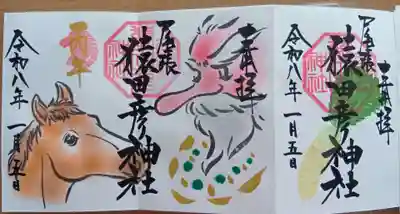 奉拝
尾張
猿田彦神社
丙午
令和八年
一月五日
奉拝
尾張
猿田彦神社
令和八年
一月五日